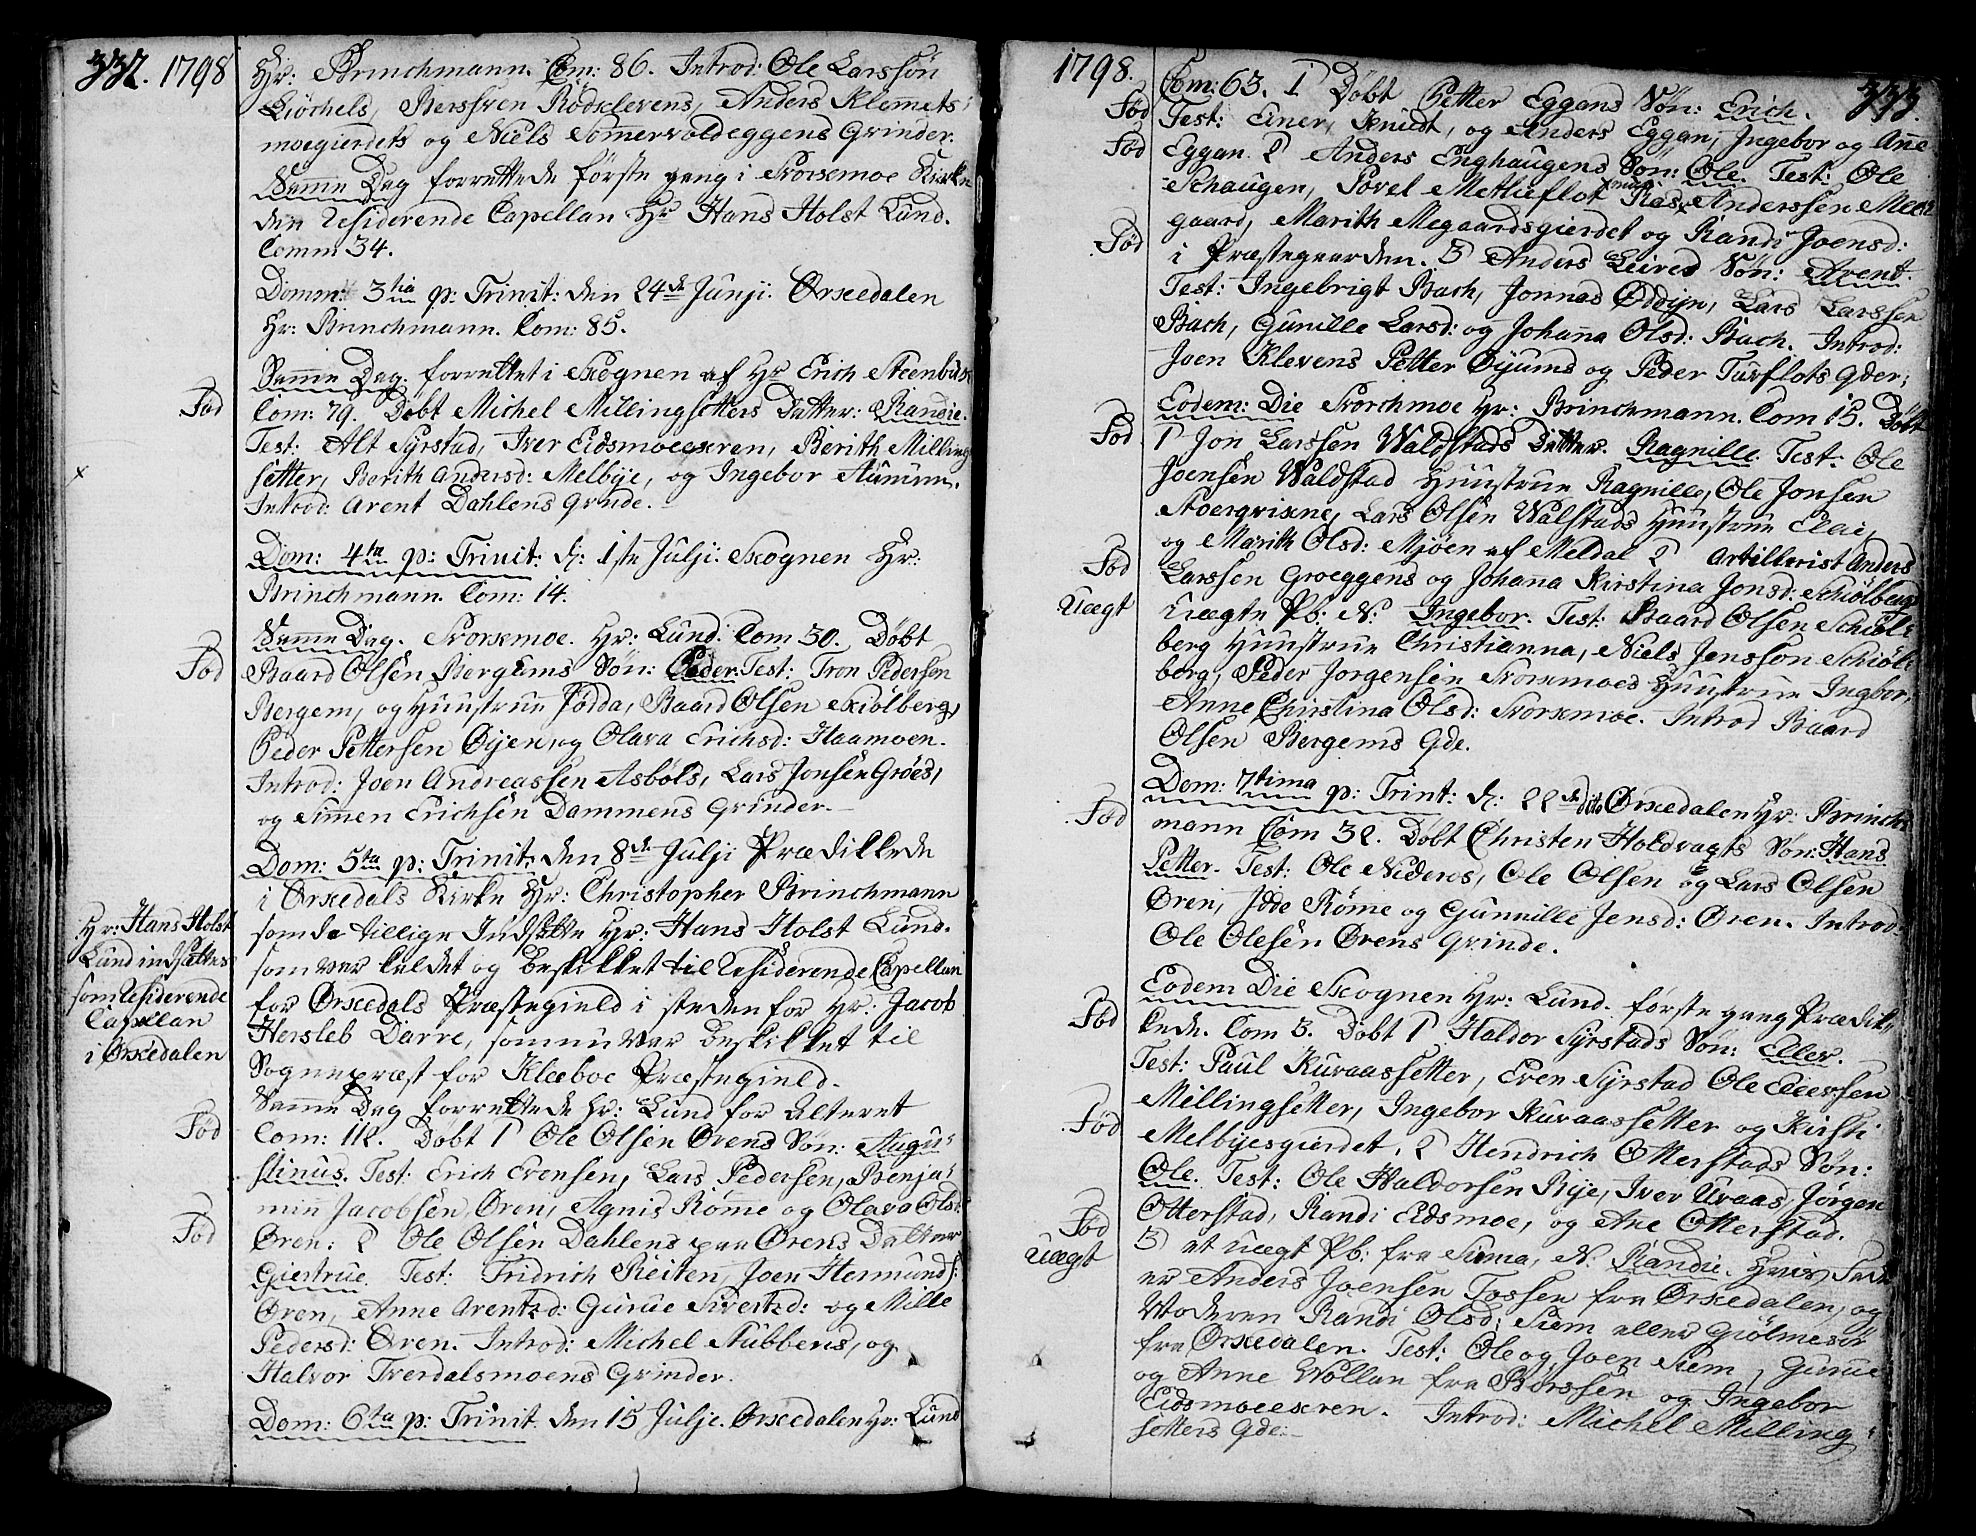 332. 1798
Hr: Brinchmann. Com: 86. Introd: Ole Larssön
Liöchels, Berssven Rödklevens, Anders Klemets-
moegierdets og Niels Somervoldeggens Grinder.
Samme Dag forrettede förste gang i Korsemoe Kirke
den Residerende Capellan Hr Hans Holst Lund.
Comm 34.
Domm: 3tia p: Trinit: den 24de Junji. Orkedalen
Hr: Brinchmann. Com: 85.
Samme Dag. forrettet i Skognen af Hr Erich Steenbuk
Fød
Com: 79. Döbt Michel Millingsetters Datter: Randie.
Test: Alt Syrstad, Iver Eidsmoeexren, Berith Milling
setter, Berith Andersd: Melbye, og Ingebor
Introd: Arent Dahlens Grinde.
Dom: 4ta p: Trinit: d: 1ste Julji. Skognen Hr:
Brinchmann. Com: 14.
Samme Dag. Korsemoe. Hr: Lund: Com 30. Döbt
Fød
Baard Olsen Bergems Sön: Peder. Test: Tron Pedersen
Bergem, og Huustrue Jödda, Baard Olsen Skiölberg,
Peder Pettersen Öyen, og Olava Erichsd: Haamoen.
Introd: Joen Andreassen Asböls, Lars Jonsen Gröes,
og Simen Erichsen Dammens Grinder.
Dom: 5ta p: Trinit: den 8de Julji Prædikkede
i Orkedals Kirke Hr: Christopher Brinchmann
som da tillige Indsatte Hr: Hans Holst Lund.
som var kaldet og beskikket til Residerende Capellan
for Orkedals Præstegield i steden for Hr: Jacob
Hersleb Darre, som nu var beskikket til
Sognepræst for Klæboe Præstegield.
Hr: Hans Holst
Lund indsattes
som Residerende
Capellan
i Orkedalen
Samme Dag forrettede Hr: Lund for Alteret
Fød
Com: 112. Döbt 1 Ole Olsen Örens Sön: Augu-
stinus. Test: Erich Evensen, Lars Pedersen, Benja-
min Jacobsen Ören, Agnis Röme og Olava Olsd:
Fød
Ören: 2 Ole Olsen Dahlens paa Örens Datter
Giertrue. Test: Fridrich Reiten, Joen Hermunds:
Ören, Anne Arentzd: Gurue Sivertzd: og Mille
Pedersd: Ören. Introd: Michel Stubbens, og
Halvor Tverdalsmoens Grinder.
Dom: 6ta p: Trinit. den 15 Julje. Orkedalen Hr: Lund
1798. 333.
Fød
Com: 63. 1 Döbt Petter Eggans Sön: Erich.
Test: Einer, Knudt, og Anders Eggan, Ingebor og Ane
Fød
Eggan. 2 Anders Enghaugens Sön: Ole. Test: Ole
Schaugen, Povel Metlieflot Rasmus Anderssen Mee
gaard, Marith Megaardsgierdet og Randi Joensd:
Fød
i Præstegaarden. 3 Anders Leires Sön: Arent.
Test: Ingebrigt Bach, Jonnas Oddyn, Lars Larssen
Bach, Gunille Larsd: og Johanna Olsd: Bach. Introd:
Joen Klevens Petter Öyums og Peder Turflots Gder;
Eodem: Die Korchmoe Hr: Brinchmann. Com 15. Döbt
Fød
1 Jon Larssen Waldstads Datter. Ragnille. Test: Ole
Joensen Waldstad Huustrue Ragnille, Ole Jonsen
Stoerqvixne, Lars Olsen Walstads Huustrue Elai,
og Marith Olsd: Mjöen af Meldal 2 Artillerist Anders
Fød
Uægt
Larssen Groeggens og Johanna Kirstina Jonsd: Schiölbergs
Uægte Pb: N: Ingebor. Test: Baard Olsen Schiöl-
berg Huustrue Christianna, Niels Jenssön Schiöl-
berg, Peder Jorgensen Korsemoes Huustrue Ingbor,
Anne Christina Olsd: Korsemoe. Introd Baard
Olsen Bergems Gde.
Dom: 7tima p: Trint: d: 22de dito Orkedalen Hr: Brinch-
Fød
mann Com 32. Döbt Christen Holdvagts Sön: Hans
Petter. Test: Ole Nideros, Ole Olsen og Lars Olsen
Ören, Idde Röme og Gunnille Jensd: Ören. Introd:
Ole Olesen Örens Grinde.
Eodem Die Skognen Hr: Lund. förste gang Prædik-
Fød
kede. Com 3. Döbt 1 Haldor Syrstads Sön: Eller.
Test: Paul Kuraassetter, Even Syrstad Ole Elerssen
Millingsetter, Ingebor Kuraassetter og Kirsti
Fød
Melbyesgierdet, 2 Hendrich Otterstads Sön:
Ole. Test: Ole Haldorsen Rye, Iver Uraas, Jörgen
Otterstad, Randi Eidsmoe, og Ane Otterstad.
Fød
Uægt
3 et uægt Pb: fra Suma, N: Randie. Hvis Far
er Anders Joensen Fossen fra Orkedalen, og
Moderen Randi Olsd: Siem eller Giölmesör
fra Orkedalen. Test: Ole og Joen Siem, Gurue
og Anne Wollan fra Börssen og Ingebor
Eidsmoeexren. Introd: Michel Milling-
setters Gde: